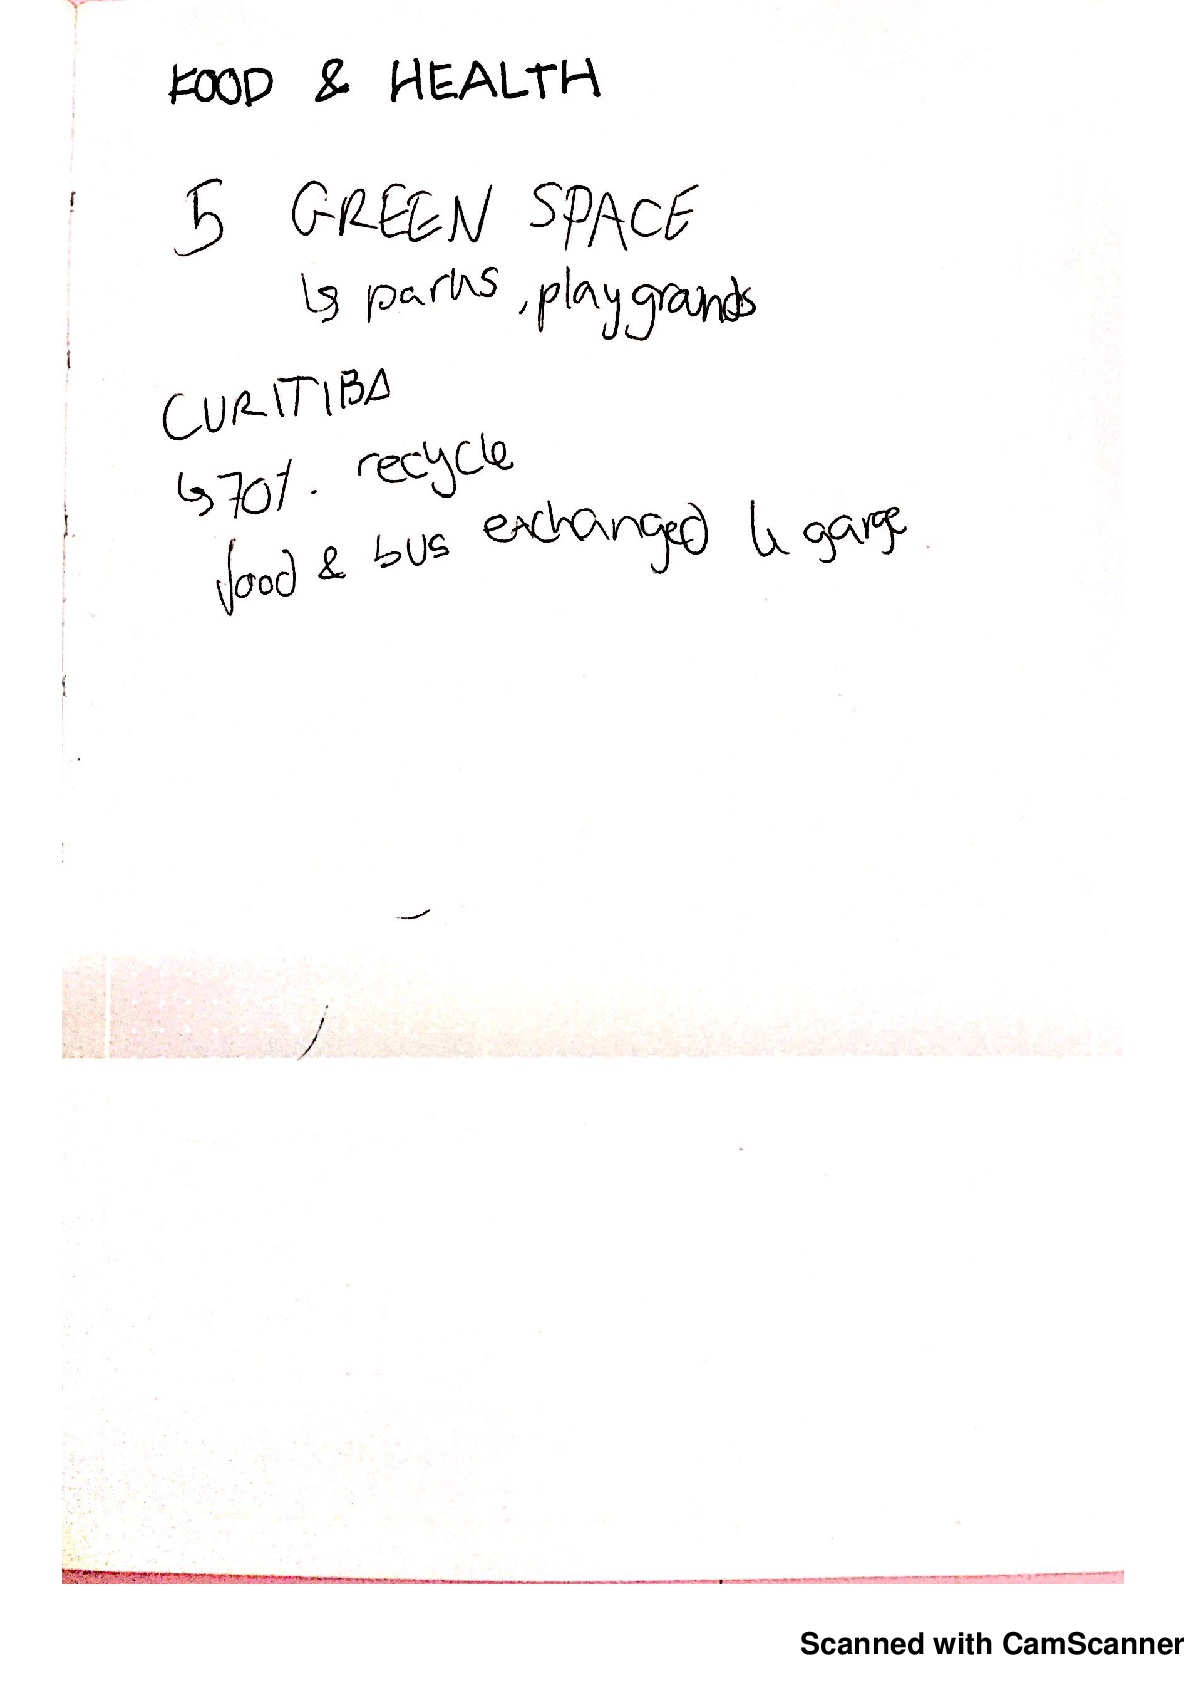 FOOD & HEALTH
5 GREEN SPACE
↳ parks, playgrands
CURITIBA
↳ 70% recycle
food & bus exchanged garge
Scanned with CamScanner